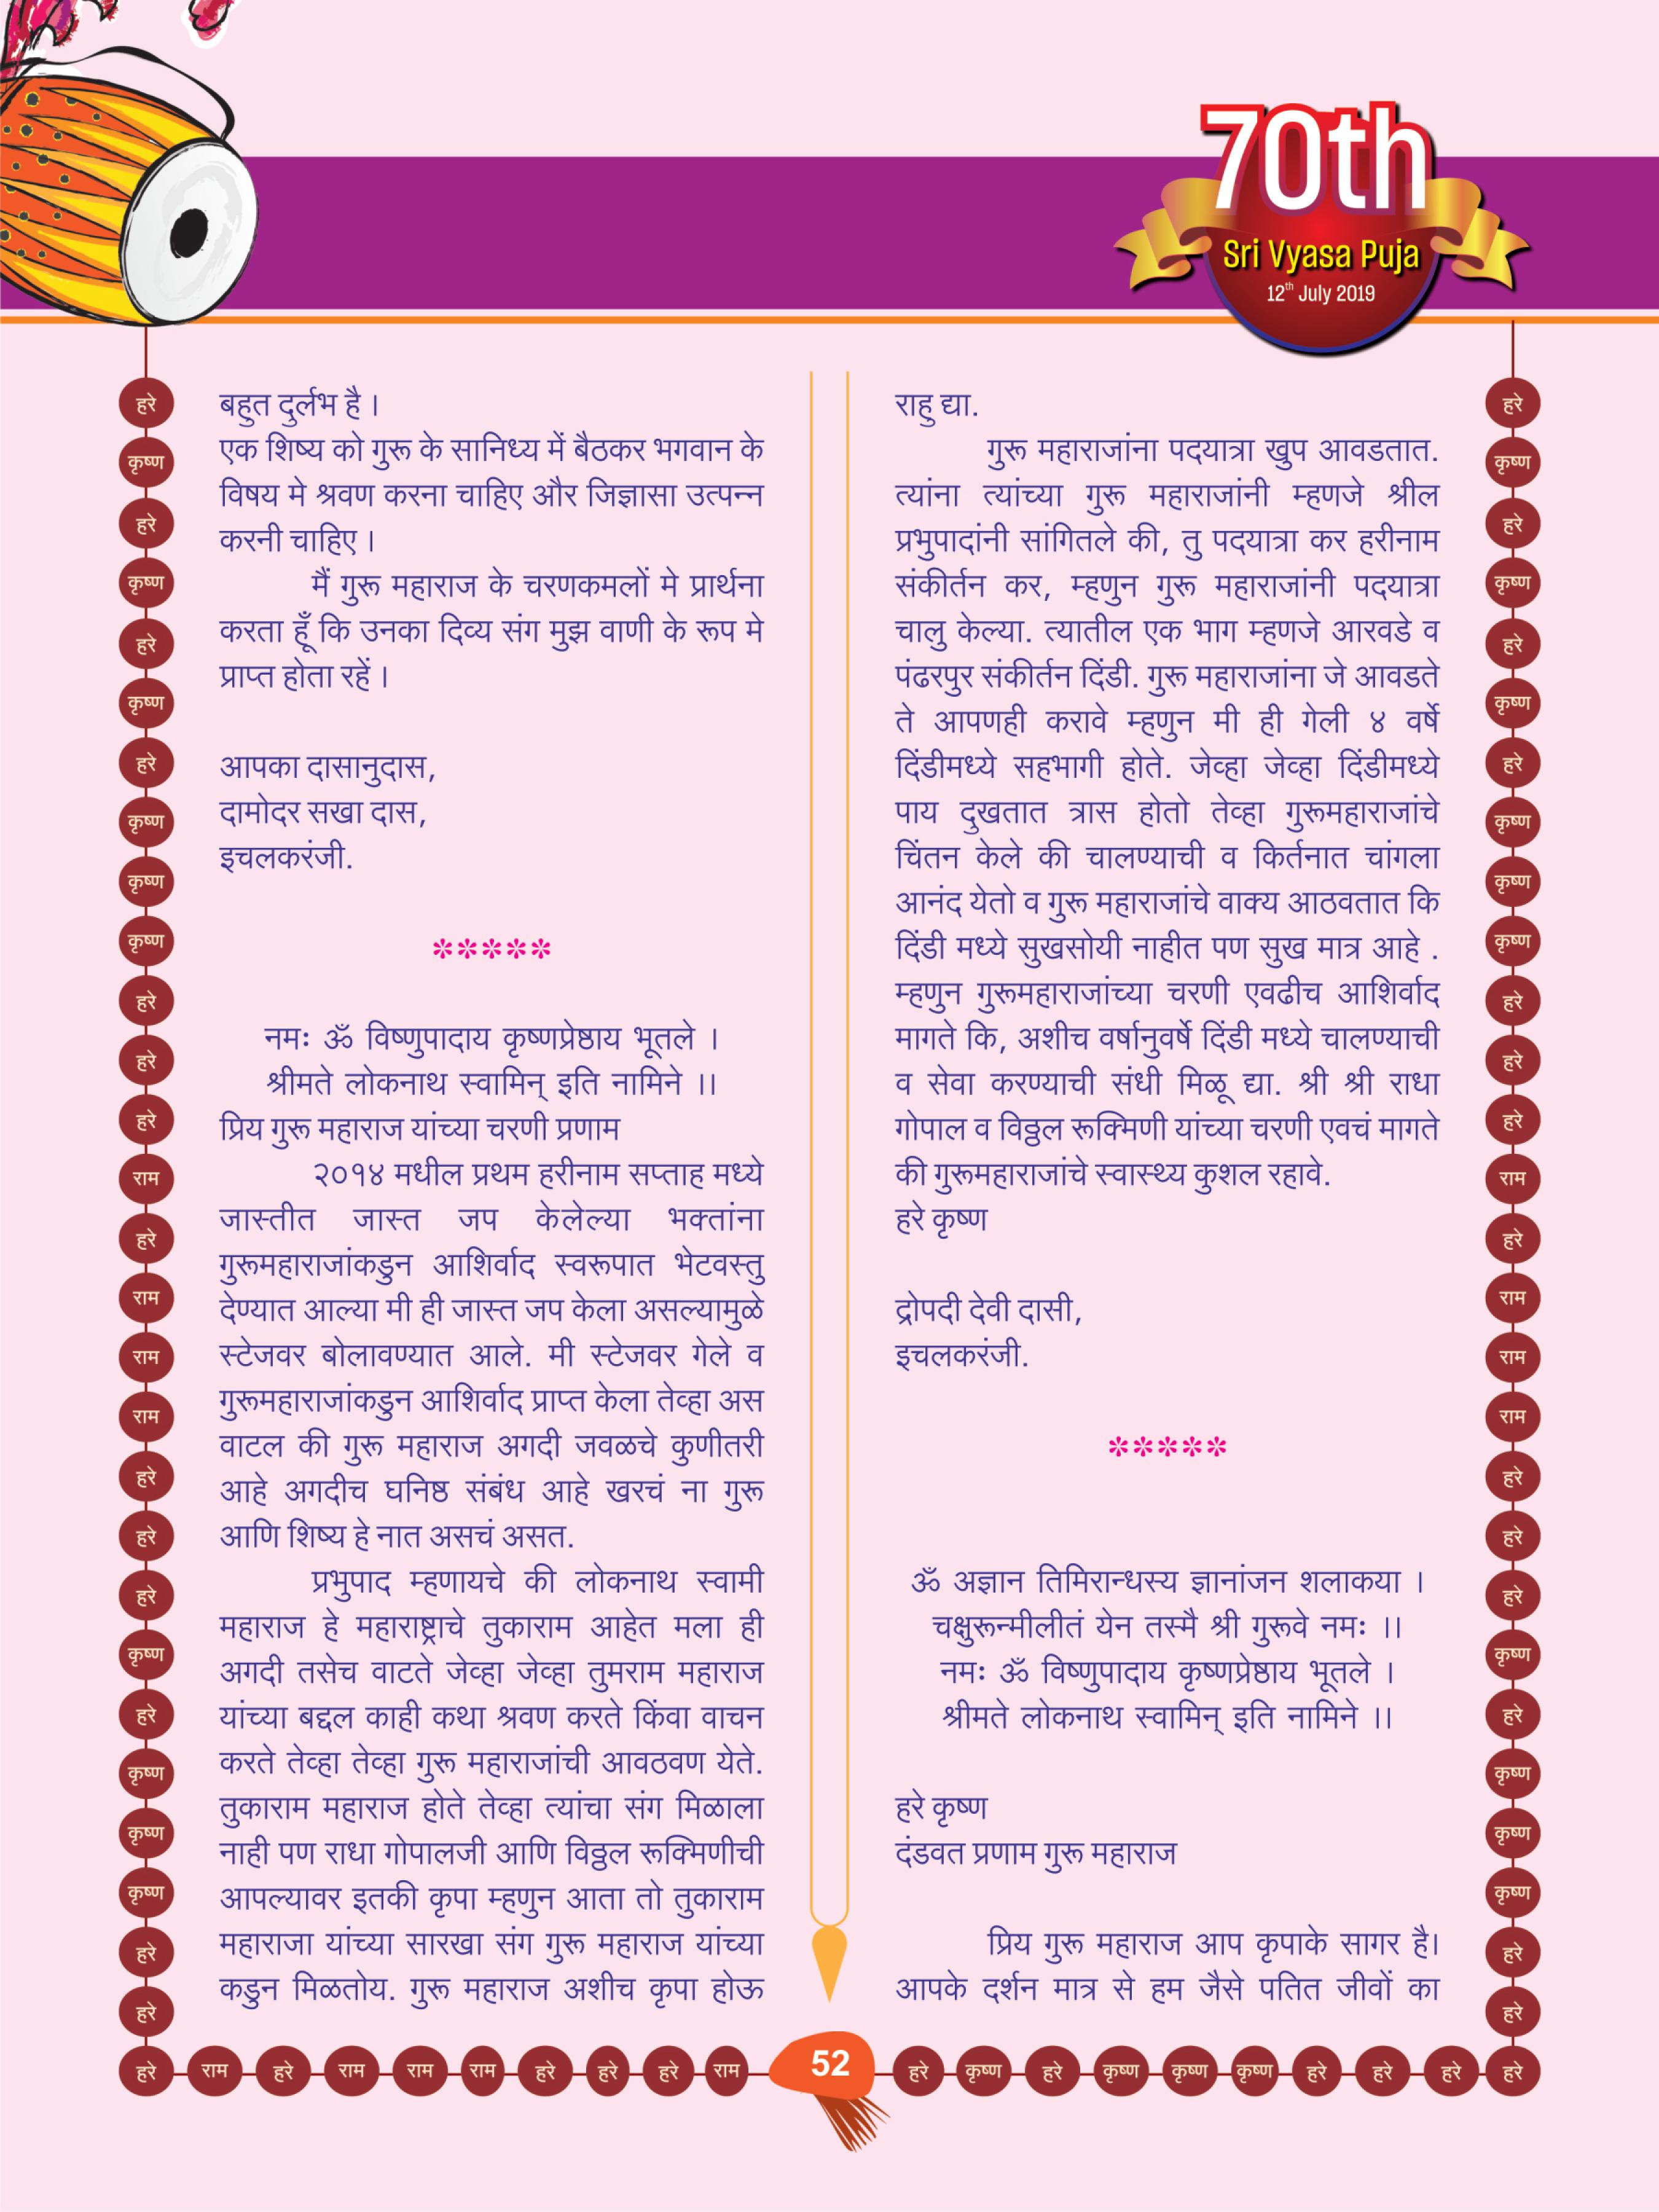 70th
Sri Vyasa Puja
12th July 2019
बहुत दुर्लभ है ।
एक शिष्य को गुरू के सानिध्य में बैठकर भगवान के
विषय मे श्रवण करना चाहिए और जिज्ञासा उत्पन्न
करनी चाहिए ।
मैं गुरू महाराज के चरणकमलों मे प्रार्थना
करता हूँ कि उनका दिव्य संग मुझ वाणी के रूप मे
प्राप्त होता रहें ।
आपका दासानुदास,
दामोदर सखा दास,
इचलकरंजी.
*****
नमः ॐ विष्णुपादाय कृष्णप्रेष्ठाय भूतले ।
श्रीमते लोकनाथ स्वामिन् इति नामिने ।।
प्रिय गुरू महाराज यांच्या चरणी प्रणाम
२०१४ मधील प्रथम हरीनाम सप्ताह मध्ये
जास्तीत जास्त जप केलेल्या भक्तांना
गुरूमहाराजांकडुन आशिर्वाद स्वरूपात भेटवस्तु
देण्यात आल्या मी ही जास्त जप केला असल्यामुळे
स्टेजवर बोलावण्यात आले. मी स्टेजवर गेले व
गुरूमहाराजांकडुन आशिर्वाद प्राप्त केला तेव्हा अस
वाटल की गुरू महाराज अगदी जवळचे कुणीतरी
आहे अगदीच घनिष्ठ संबंध आहे खरचं ना गुरू
आणि शिष्य हे नात असचं असत.
प्रभुपाद म्हणायचे की लोकनाथ स्वामी
महाराज हे महाराष्ट्राचे तुकाराम आहेत मला ही
अगदी तसेच वाटते जेव्हा जेव्हा तुमराम महाराज
यांच्या बद्दल काही कथा श्रवण करते किंवा वाचन
करते तेव्हा तेव्हा गुरू महाराजांची आवठवण येते.
तुकाराम महाराज होते तेव्हा त्यांचा संग मिळाला
नाही पण राधा गोपालजी आणि विठ्ठल रूक्मिणीची
आपल्यावर इतकी कृपा म्हणुन आता तो तुकाराम
महाराजा यांच्या सारखा संग गुरू महाराज यांच्या
कडुन मिळतोय. गुरू महाराज अशीच कृपा होऊ
राहु द्या.
गुरू महाराजांना पदयात्रा खुप आवडतात.
त्यांना त्यांच्या गुरू महाराजांनी म्हणजे श्रील
प्रभुपादांनी सांगितले की, तु पदयात्रा कर हरीनाम
संकीर्तन कर, म्हणुन गुरू महाराजांनी पदयात्रा
चालु केल्या. त्यातील एक भाग म्हणजे आरवडे व
पंढरपुर संकीर्तन दिंडी. गुरू महाराजांना जे आवडते
ते आपणही करावे म्हणुन मी ही गेली ४ वर्षे
दिंडीमध्ये सहभागी होते. जेव्हा जेव्हा दिंडीमध्ये
पाय दुखतात त्रास होतो तेव्हा गुरूमहाराजांचे
चिंतन केले की चालण्याची व किर्तनात चांगला
आनंद येतो व गुरू महाराजांचे वाक्य आठवतात कि
दिंडी मध्ये सुखसोयी नाहीत पण सुख मात्र आहे .
म्हणुन गुरूमहाराजांच्या चरणी एवढीच आशिर्वाद
मागते कि, अशीच वर्षानुवर्षे दिंडी मध्ये चालण्याची
व सेवा करण्याची संधी मिळू द्या. श्री श्री राधा
गोपाल व विठ्ठल रूक्मिणी यांच्या चरणी एवचं मागते
की गुरूमहाराजांचे स्वास्थ्य कुशल रहावे.
हरे कृष्ण
द्रोपदी देवी दासी,
इचलकरंजी.
*****
ॐ अज्ञान तिमिरान्धस्य ज्ञानांजन शलाकया ।
चक्षुरून्मीलीतं येन तस्मै श्री गुरूवे नमः ।।
नमः ॐ विष्णुपादाय कृष्णप्रेष्ठाय भूतले ।
श्रीमते लोकनाथ स्वामिन् इति नामिने ।।
हरे कृष्ण
दंडवत प्रणाम गुरू महाराज
प्रिय गुरू महाराज आप कृपाके सागर है।
आपके दर्शन मात्र से हम जैसे पतित जीवों का
हरे
कृष्ण
हरे
कृष्ण
हरे
कृष्ण
हरे
कृष्ण
कृष्ण
कृष्ण
हरे
हरे
हरे
राम
हरे
राम
राम
राम
हरे
हरे
हरे
कृष्ण
हरे
कृष्ण
कृष्ण
कृष्ण
हरे
हरे
हरे
कृष्ण
हरे
कृष्ण
हरे
कृष्ण
हरे
कृष्ण
कृष्ण
कृष्ण
हरे
हरे
हरे
राम
हरे
राम
राम
राम
हरे
हरे
हरे
कृष्ण
हरे
कृष्ण
कृष्ण
कृष्ण
हरे
हरे
हरे राम हरे राम राम राम हरे हरे हरे राम 52 हरे कृष्ण हरे कृष्ण कृष्ण कृष्ण हरे हरे हरे हरे